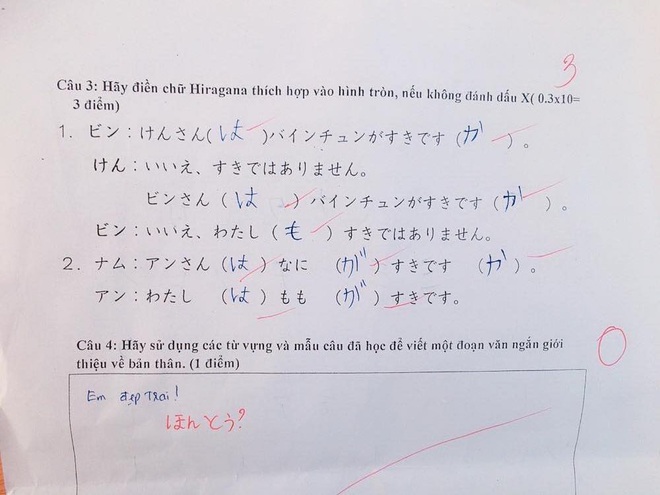 3
Câu 3: Hãy điền chữ Hiragana thích hợp vào hình tròn, nếu không đánh dấu X( 0.3x10=
3 điểm)
1. ビン：けんさん(は)バインチュンがすきです（か）。
けん：いいえ、すきではありません。
ビンさん（は）バインチュンがすきです（か）。
ビン：いいえ、わたし（も）すきではありません。
2. ナム：アンさん（は）なに（が）すきです（か）。
アン：わたし（は）もも（が）すきです。
Câu 4: Hãy sử dụng các từ vựng và mẫu câu đã học để viết một đoạn văn ngắn giới
thiệu về bản thân. (1 điểm)
0
Em đẹp trai!
ほんとう?